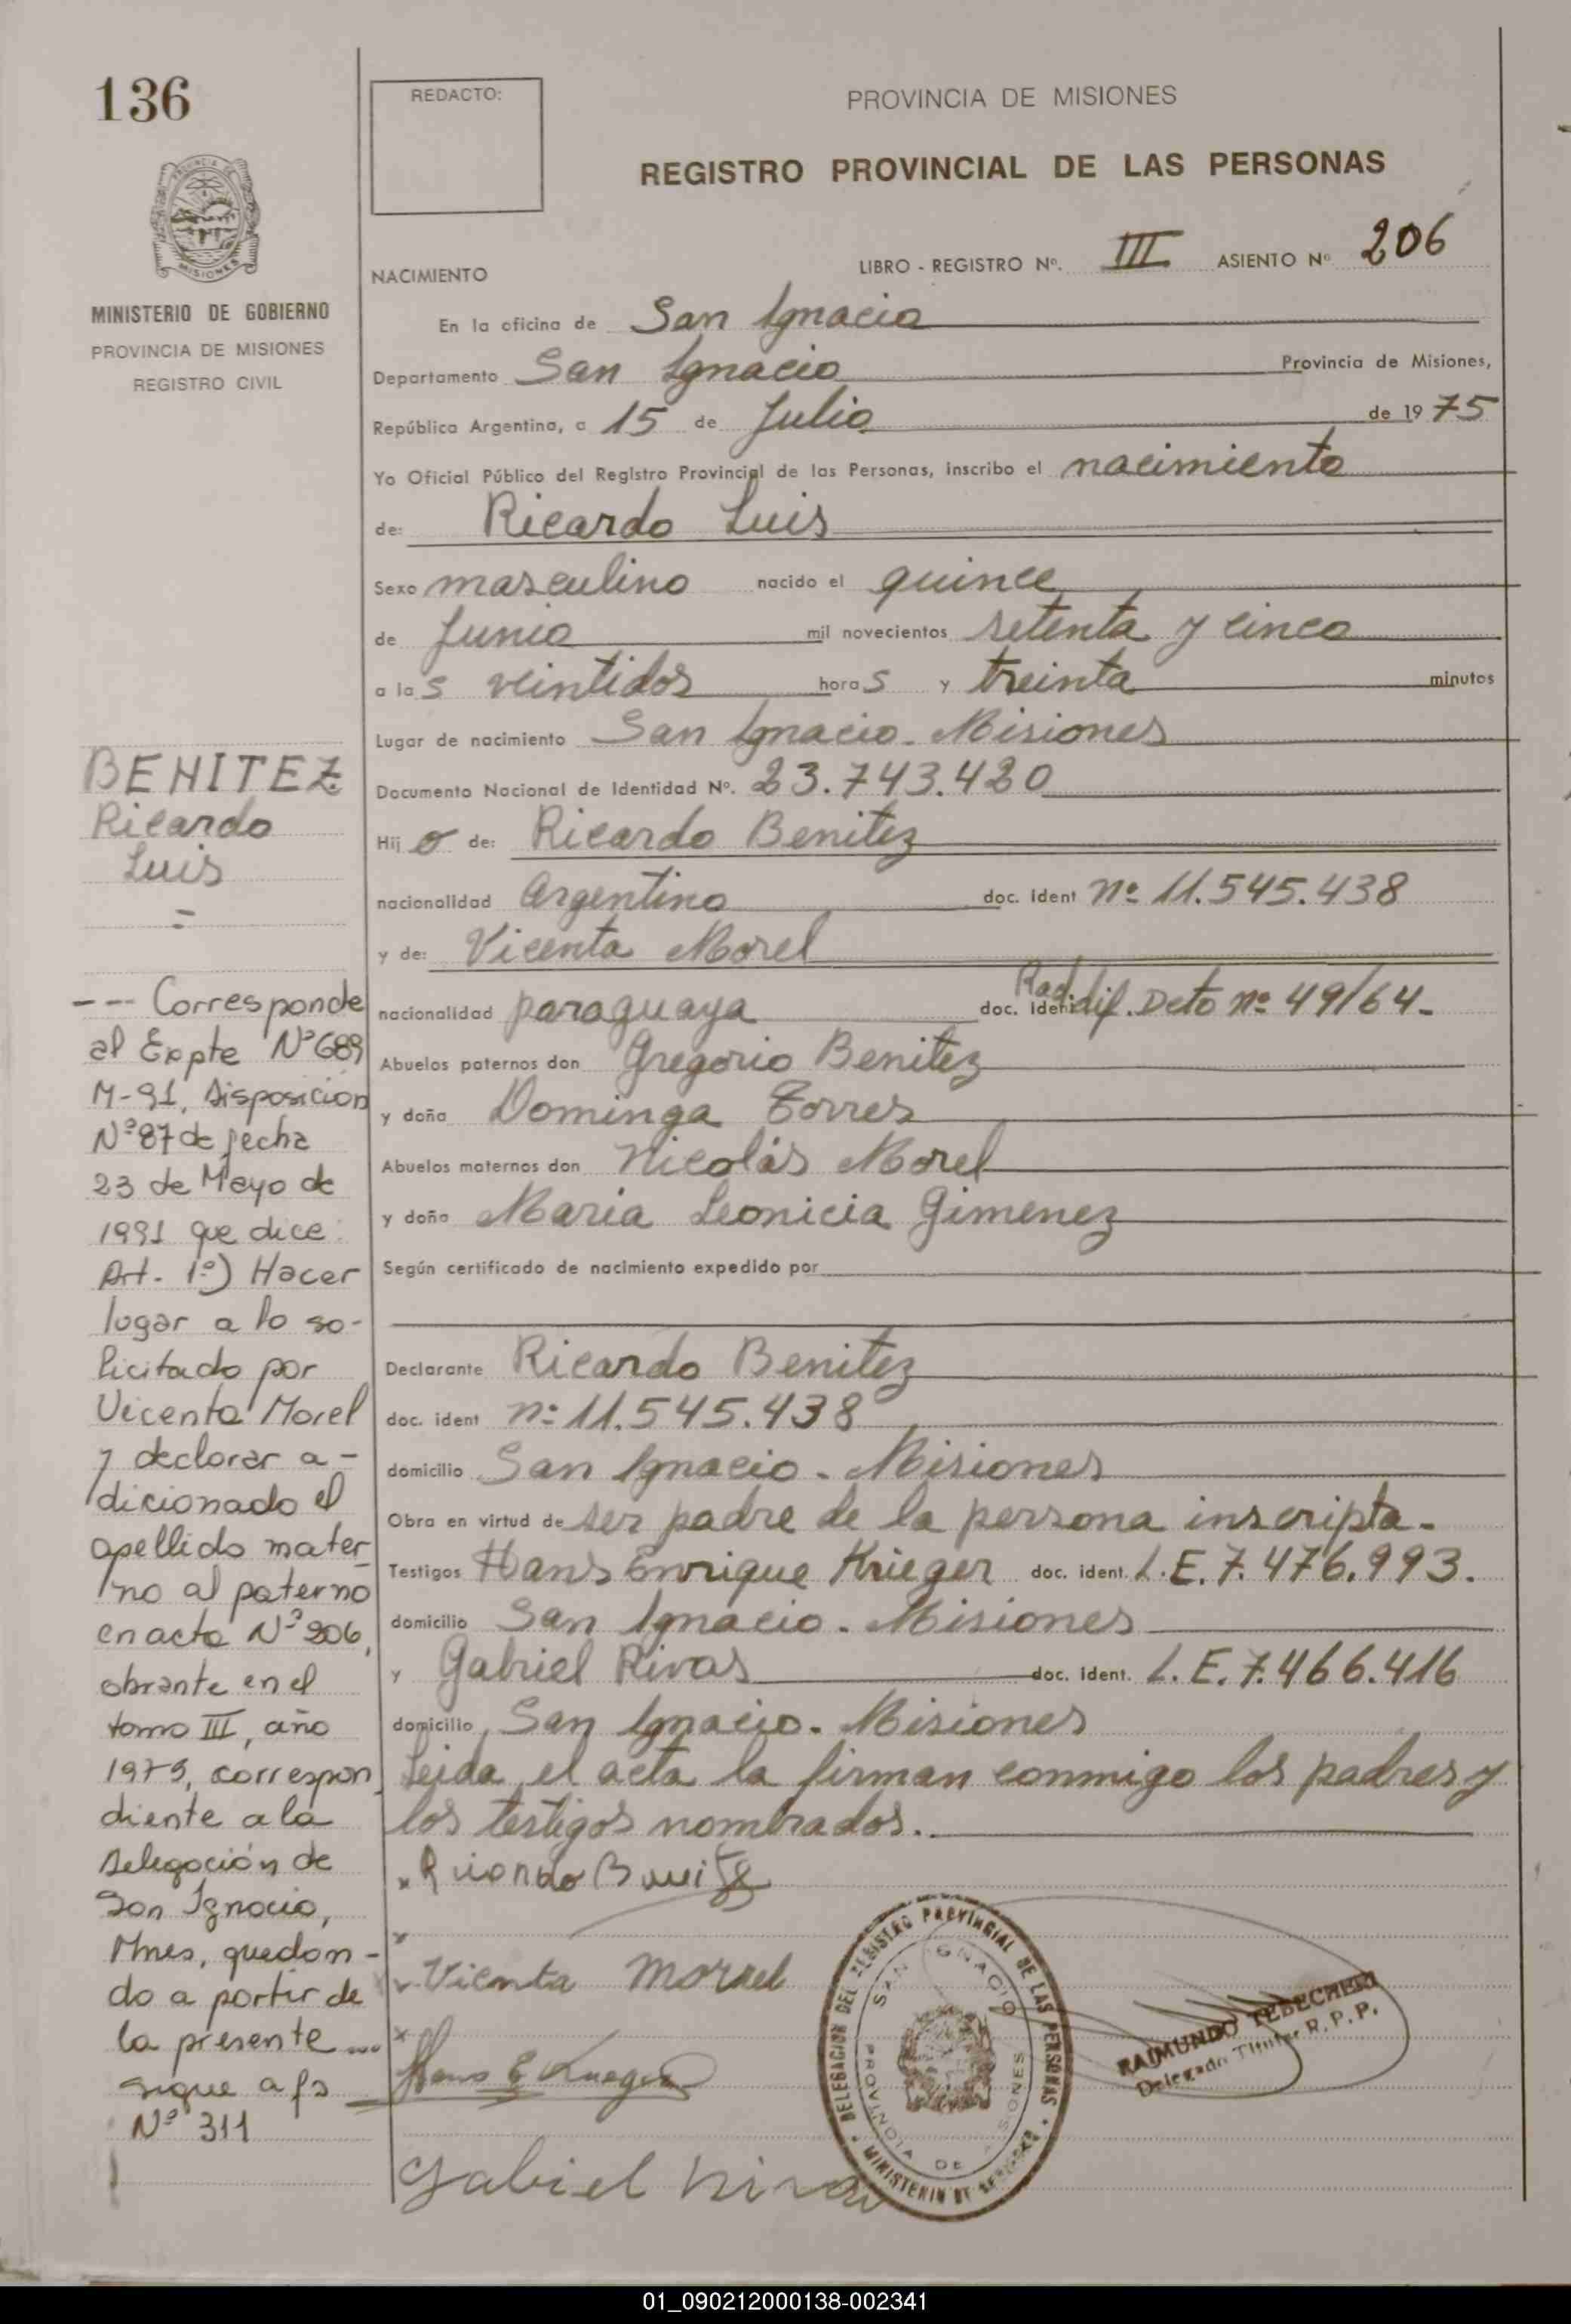 136
REDACTO:
PROVINCIA DE MISIONES
REGISTRO PROVINCIAL DE LAS PERSONAS
PROVINCIA DE
MISIONES
MINISTERIO DE GOBIERNO
PROVINCIA DE MISIONES
REGISTRO CIVIL
NACIMIENTO
LIBRO - REGISTRO Nº. III ASIENTO Nº 206
En la oficina de San Ignacio
Departamento San Ignacio Provincia de Misiones,
República Argentina, a 15 de Julio de 1975
Yo Oficial Público del Registro Provincial de las Personas, inscribo el nacimiento
de: Ricardo Luis
Sexo masculino nacido el quince
de Junio mil novecientos setenta y cinco
a las veintidos horas y treinta minutos
Lugar de nacimiento San Ignacio - Misiones
Documento Nacional de Identidad Nº. 23.743.420
Hijo de: Ricardo Benitez
nacionalidad Argentino doc. ident nº 11.545.438
y de: Vicenta Morel
nacionalidad paraguaya doc. ident Rad. dif. Dcto nº 49/64-
Abuelos paternos don Gregorio Benitez
y doña Dominga Torres
Abuelos maternos don Nicolás Morel
y doña Maria Leonicia Gimenez
Según certificado de nacimiento expedido por
Declarante Ricardo Benitez
doc. ident nº 11.545.438
domicilio San Ignacio - Misiones
Obra en virtud de ser padre de la persona inscripta.
Testigos Hans Enrique Krieger doc. ident. L.E.7.476.993.
domicilio San Ignacio - Misiones
y Gabriel Rivas doc. ident. L.E.7.466.416
domicilio San Ignacio - Misiones
Leida el acta la firman conmigo los padres y
los testigos nombrados.
Ricardo Benitez
Vicenta Morael
Hans E Krueger
Gabriel Rivas
BENITEZ
Ricardo
Luis
=
--- Corresponde
al Expte Nº 689
M-91, Disposición
Nº 87 de fecha
23 de Mayo de
1991 que dice:
Art. 1º) Hacer
lugar a lo so-
licitado por
Vicenta Morel
y declarar a-
dicionado el
apellido mater-
no al paterno
en acta Nº 206,
obrante en el
tomo III, año
1975, correspon-
diente a la
Delegación de
San Ignacio,
Mnes, quedan-
do a partir de
la presente ...
sigue a fs
Nº 311
DELEGACION DEL REGISTRO PROVINCIAL DE LAS PERSONAS
MINISTERIO DE GOBIERNO
SAN IGNACIO
PROVINCIA DE MISIONES
RAIMUNDO TEBECHERI
Delegado Titular R.P.P.
01_090212000138-002341